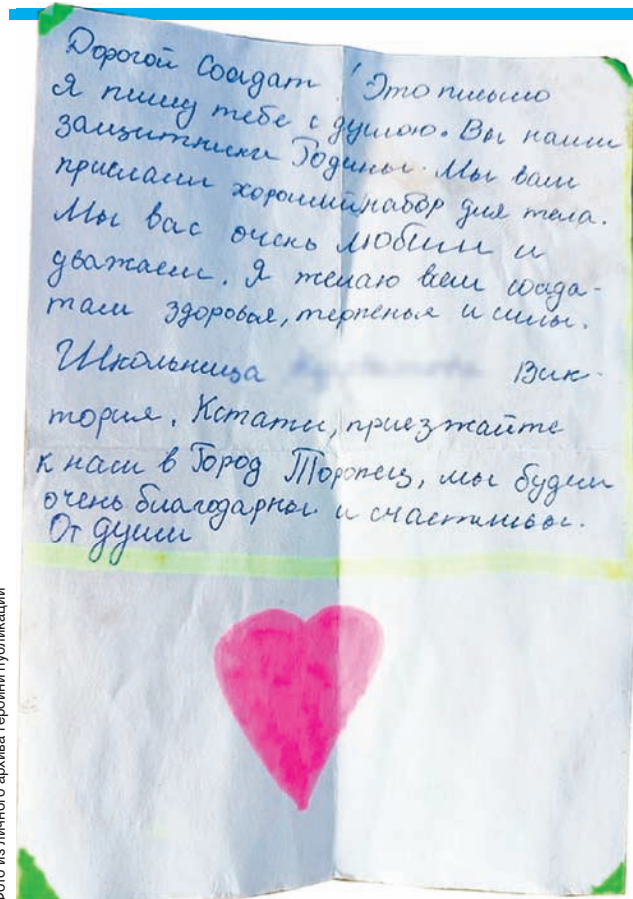 Дорогой Солдат! Это письмо
я пишу тебе с душою. Вы наши
защитники Родины. Мы вам
прислали хороший набор для тела.
Мы вас очень любим и
уважаем. Я желаю всем солда-
там здоровья, терпенья и силы.
Школьница Вик-
тория. Кстати, приезжайте
к нам в Город Торопец, мы будем
очень благодарны и счастливы.
От души
Фото из личного архива героини публикации